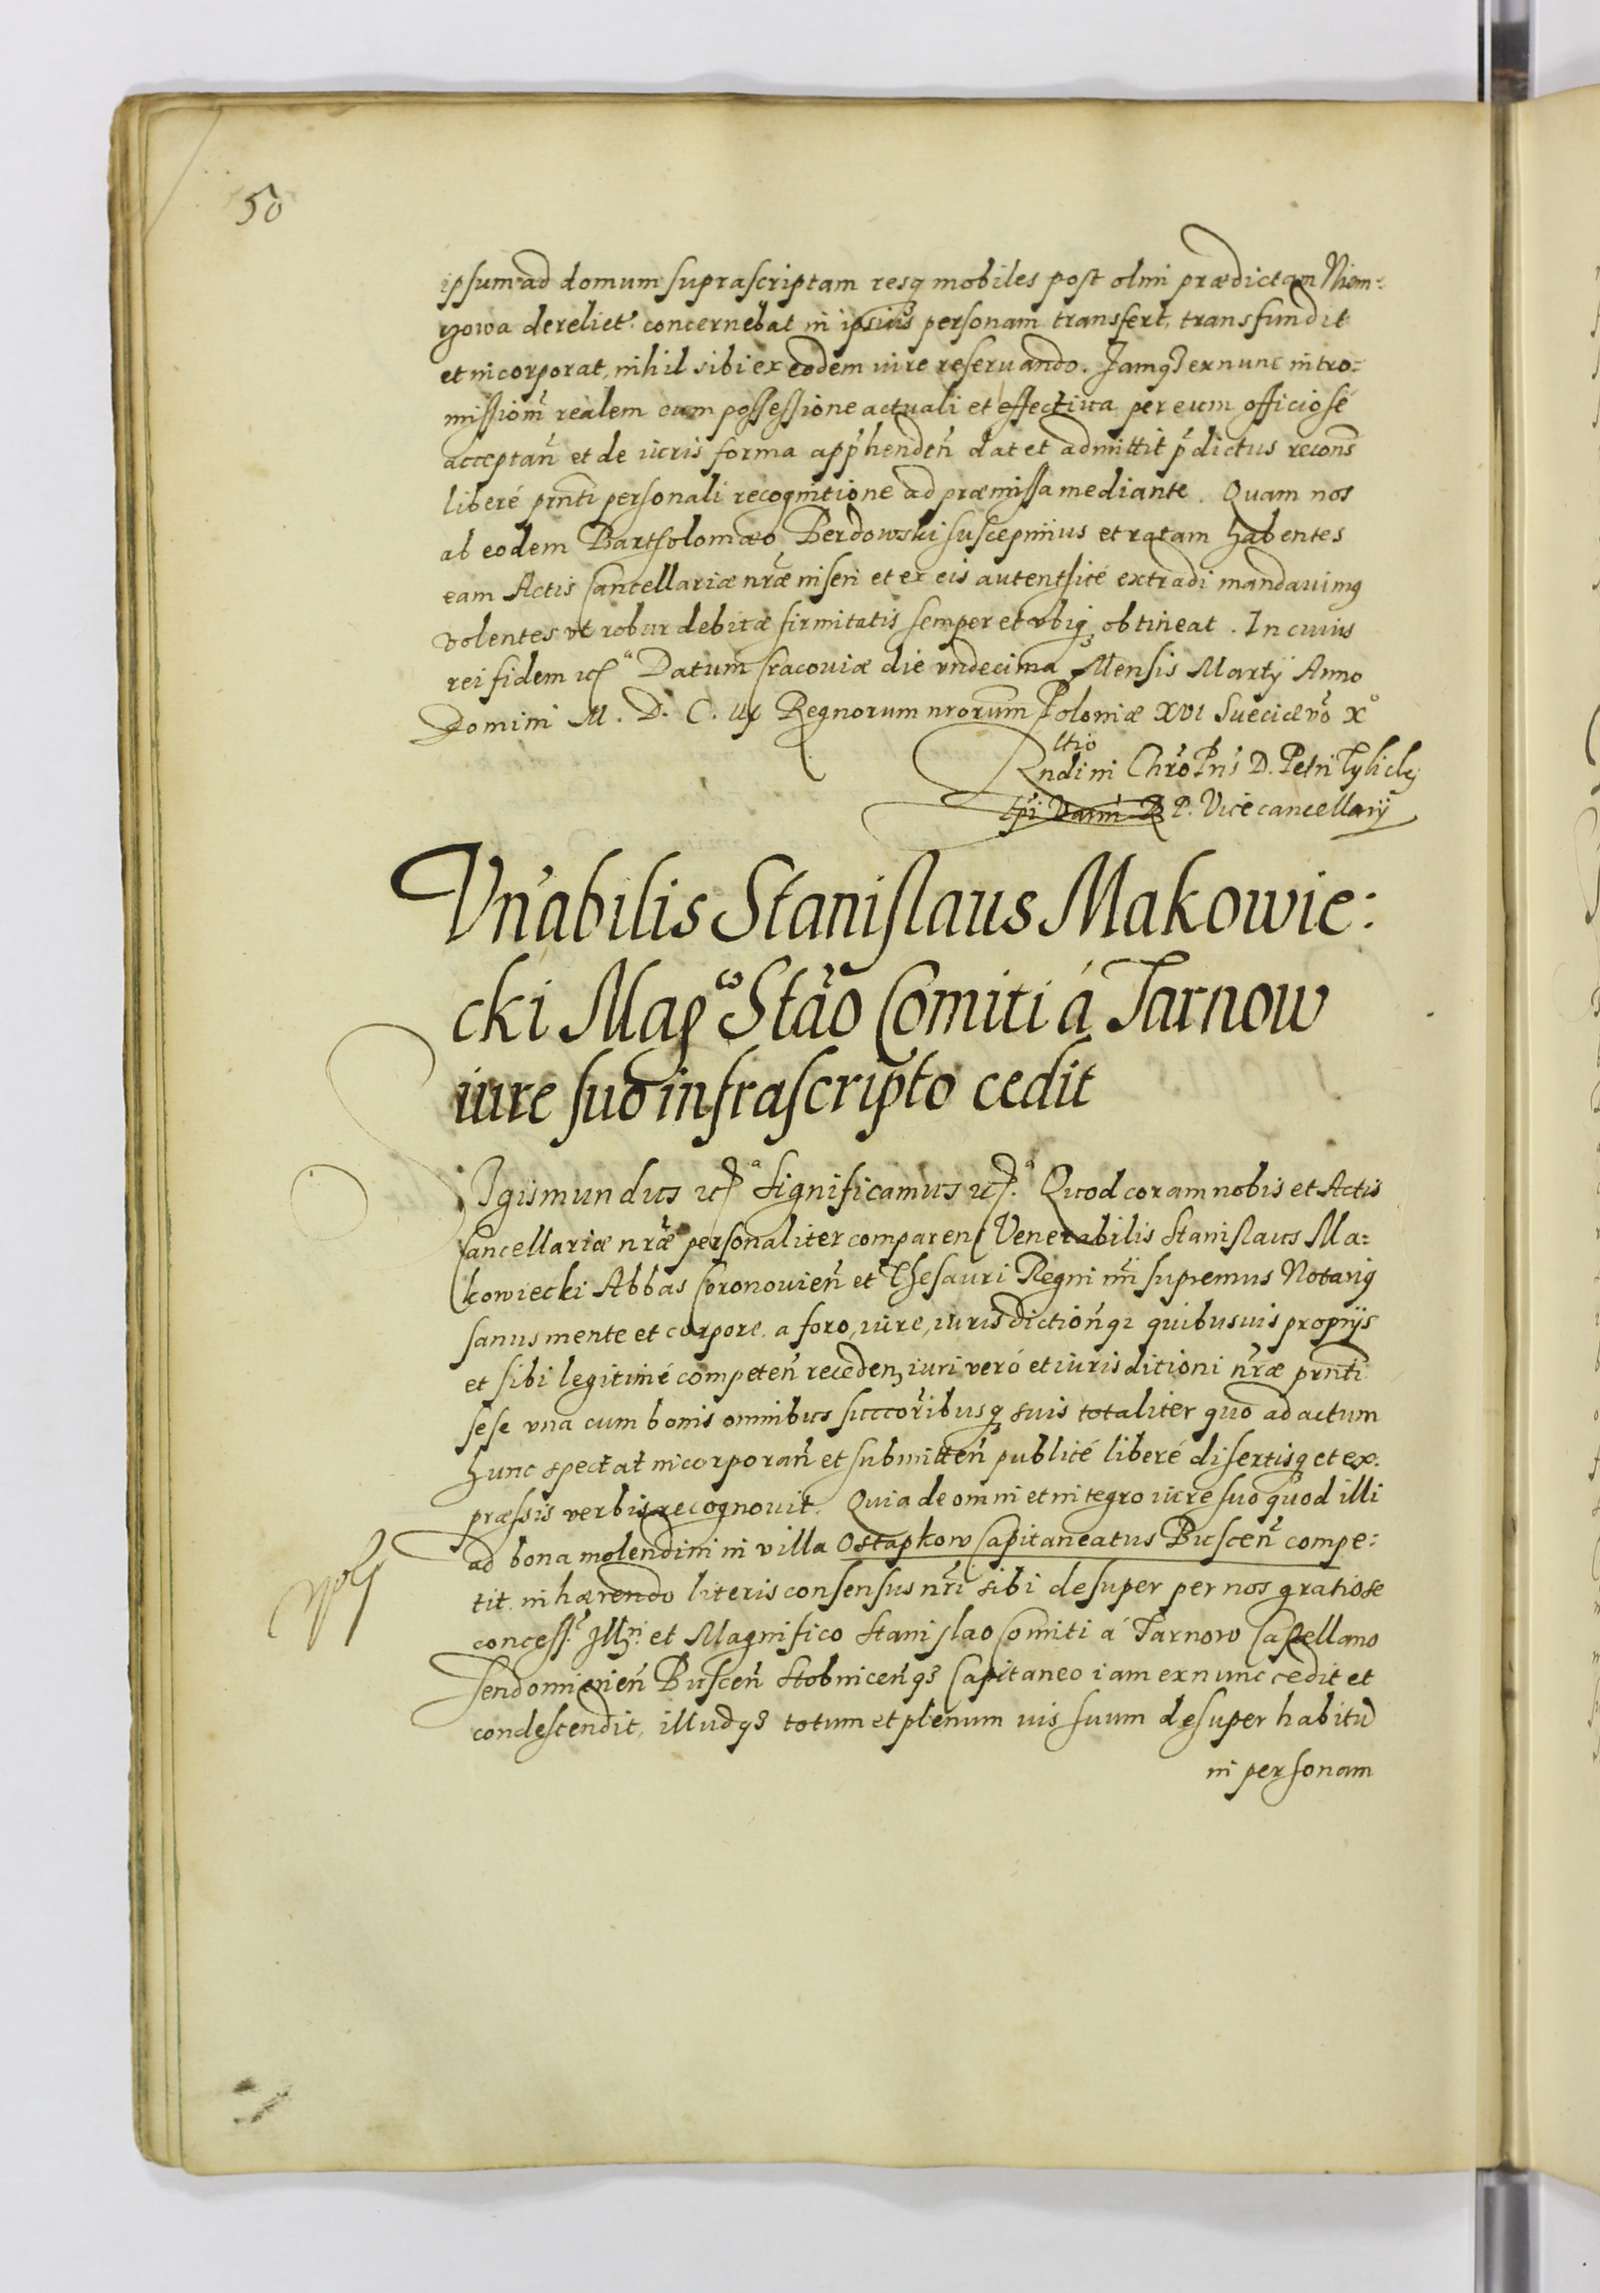 50
ipsum ad domum suprascriptam resq mobiles post olim prædictam Niem:
rzowa derelict: concernebat in ipsius personam transfert, transfundit
et incorporat, nihil sibi ex eodem iure reseruando. Jamqȝ ex nunc intro:
missioñ realem cum possessione actuali et effectiua per eum officiosé
acceptañ et de iuris forma app̃henden̄ dat et admittit p̃dictus recons̄
liberé pn̄ti personali recognitione ad præmissa mediante. Quam nos
ab eodem Bartholomæo Berdowski suscepimus et ratam habentes
eam Actis Cancellariæ nr̃æ inseri et ex eis autenthicé extradi mandauimq
volentes vt robur debitæ firmitatis semper et vbiq obtineat. In cuius
rei fidem etc̄a Datum Cracouiæ die vndecima Mensis Martÿ Anno
Domini M. D. C. iii Regnorum nrorum Poloniæ XVI Sueciæ vo X°
Rltio
Rndi in Chr̃o Pr̃is D. Petri Tylicky
Ep̃i Varm̃ R P. Vicecancellarÿ
Vn̄abilis Stanislaus Makowie:
cki Magco Stãο Comiti á Tarnow
iure suo infrascripto cedit
Sigismundus etc̄a Significamus etc̄a. Quod coram nobis et Actis
Cancellariæ nr̃æ personaliter comparens Venerabilis Stanislaus Ma:
kowiecki Abbas Coronouieñ et Thesauri Regni nr̃i supremus Notariq
sanus mente et corpore. a foro, iure, iurisdictioñqȝ quibusuis proprÿs
et sibi legitimé competeñ receden, iuri veró et iurisditioni nr̃æ pn̄ti
sese vna cum bonis omnibus succoribusq suis totaliter quo ad actum
hunc spectat incorporañ et submitteñ publicé liberé disertisq et ex:
præssis verbis recognouit. Quia de omni et integro iure suo quod illi
ad bona molendini in villa Ostapkow Capitaneatus Busceñ compe:
tit. inhærendo literis consensus nr̃i sibi desuper per nos gratiose
concess: Illri et Magnifico Stanislao Comiti á Tarnow Castellano
Sendomirieñ Busceñ Stobniceñqȝ Capitaneo iam ex nunc cedit et
condescendit, illudqȝ totum et plenum ius suum desuper habitū
in personam